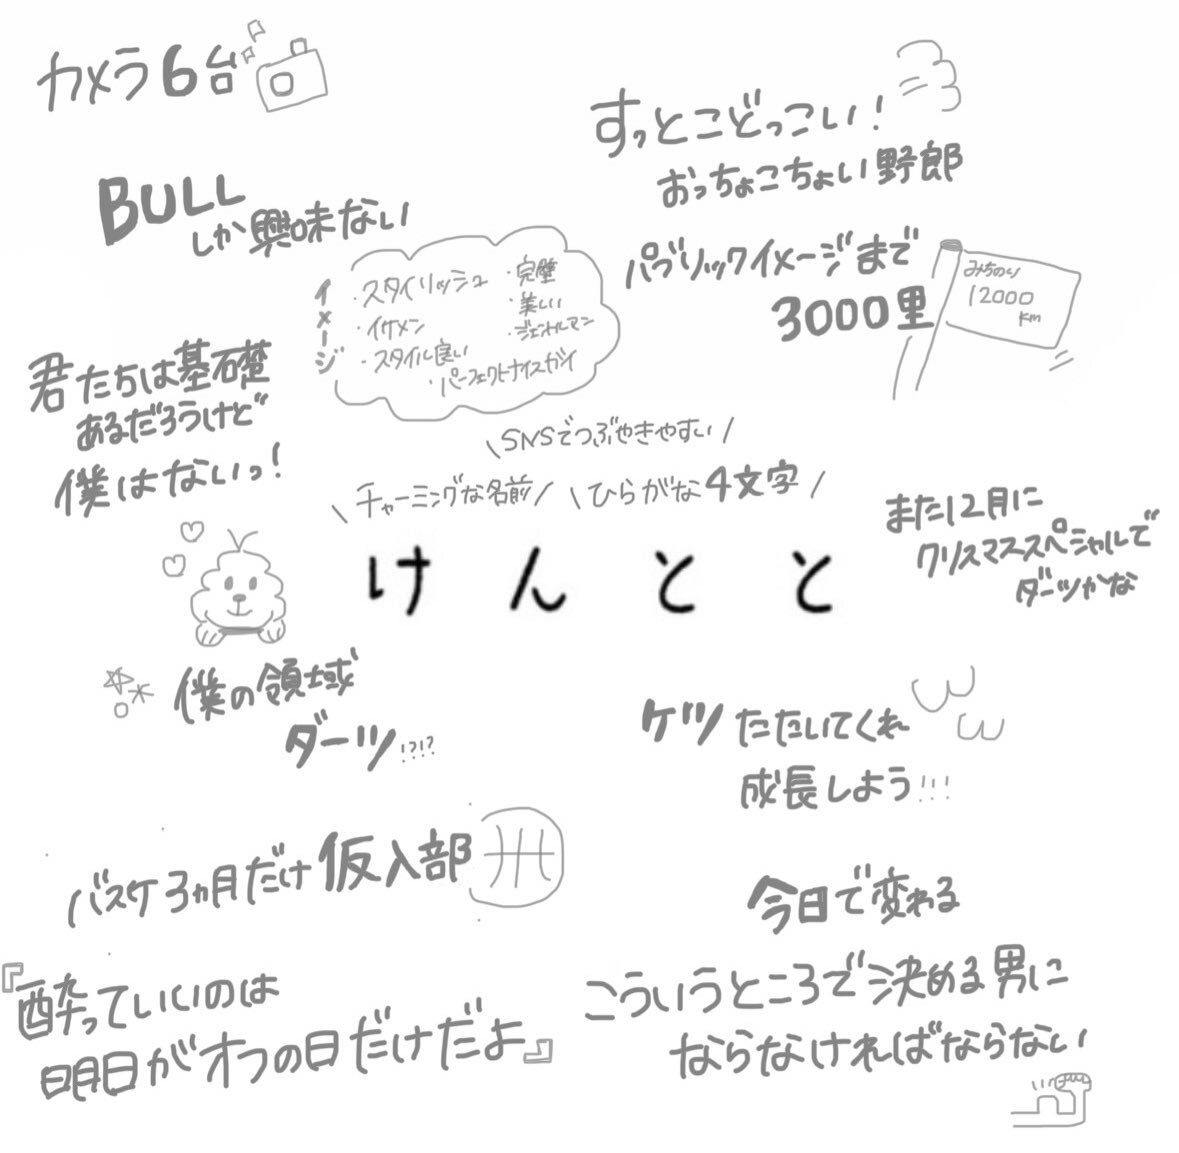 カメラ6台
すっとこどっこい!
おっちょこちょい野郎
BULL
しか興味ない
イメージ
・スタイリッシュ
・イケメン
・スタイル良い
・完璧
・美しい
・ジェントルマン
・パーフェクトナイスガイ
パブリックイメージまで
3000里
みちのり
12000
km
君たちは基礎
あるだろうけど
僕はないっ!
\SNSでつぶやきやすい/
\チャーミングな名前/
\ひらがな4文字/
けんとと
また12月に
クリスマススペシャルで
ダーツかな
僕の領域
ダーツ!?!?
ケツたたいてくれ
成長しよう!!!
バスケ3ヵ月だけ仮入部
今日で変わる
『酔っていいのは
明日がオフの日だけだよ』
こういうところで決める男に
ならなければならない